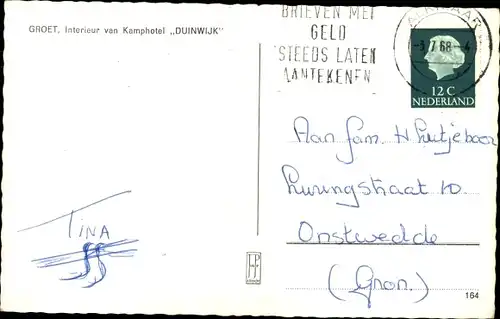 GROET, Interieur van Kamphotel „DUINWIJK"
BRIEVEN MET
GELD
STEEDS LATEN
AANTEKENEN
ALKMAAR
-3.7.68.-4
12 C
NEDERLAND
Aan fam. H Lutjeboer
Luringstraat 10.
Onstwedde
(Gron.)
TINA
164